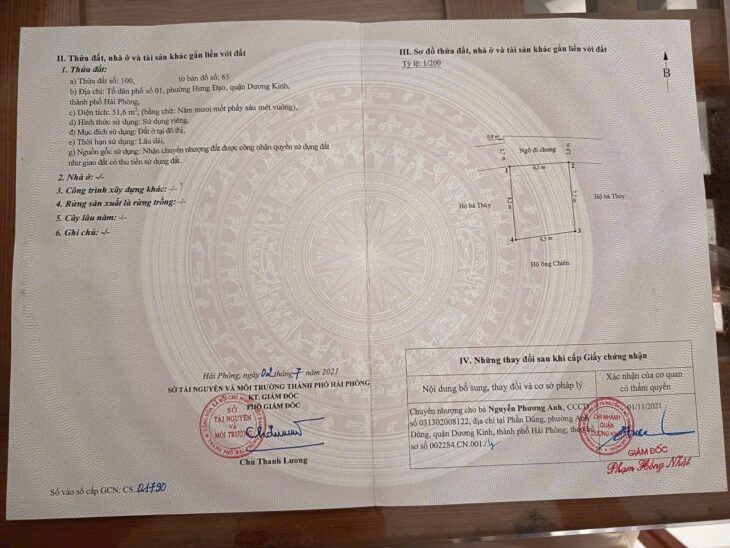 II. Thửa đất, nhà ở và tài sản khác gắn liền với đất
1. Thửa đất:
a) Thửa đất số: 100, tờ bản đồ số: 65
b) Địa chỉ: Tổ dân phố số 01, phường Hưng Đạo, quận Dương Kinh,
thành phố Hải Phòng,
c) Diện tích: 51,6 m², (bằng chữ: Năm mươi mốt phẩy sáu mét vuông),
d) Hình thức sử dụng: Sử dụng riêng,
đ) Mục đích sử dụng: Đất ở tại đô thị,
e) Thời hạn sử dụng: Lâu dài,
g) Nguồn gốc sử dụng: Nhận chuyển nhượng đất được công nhận quyền sử dụng đất
như giao đất có thu tiền sử dụng đất.
2. Nhà ở: -/-
3. Công trình xây dựng khác: -/-
4. Rừng sản xuất là rừng trồng: -/-
5. Cây lâu năm: -/-
6. Ghi chú: -/-
Hải Phòng, ngày 02 tháng 7 năm 2021
SỞ TÀI NGUYÊN VÀ MÔI TRƯỜNG THÀNH PHỐ HẢI PHÒNG
KT. GIÁM ĐỐC
PHÓ GIÁM ĐỐC
SỞ
TÀI NGUYÊN
VÀ
MÔI TRƯỜNG
Chu Thanh Lương
Số vào sổ cấp GCN: CS 01790
III. Sơ đồ thửa đất, nhà ở và tài sản khác gắn liền với đất
Tỷ lệ: 1/200
B
0,8 m
Ngõ đi chung
2,8 m
1
6,5 m
2
Hộ bà Thúy
Hộ bà Thúy
4
6,5 m
3
Hộ ông Chiến
IV. Những thay đổi sau khi cấp Giấy chứng nhận
Nội dung bổ sung, thay đổi và cơ sở pháp lý
Xác nhận của cơ quan
có thẩm quyền
Chuyển nhượng cho bà Nguyễn Phương Anh, CCCD
số 031302008122, địa chỉ tại Phấn Dũng, phường Anh
Dũng, quận Dương Kinh, thành phố Hải Phòng; theo hồ
sơ số 002284.CN.001./
01/11/2021
CHI NHÁNH
QUẬN
DƯƠNG KINH
GIÁM ĐỐC
Phạm Hồng Nhật